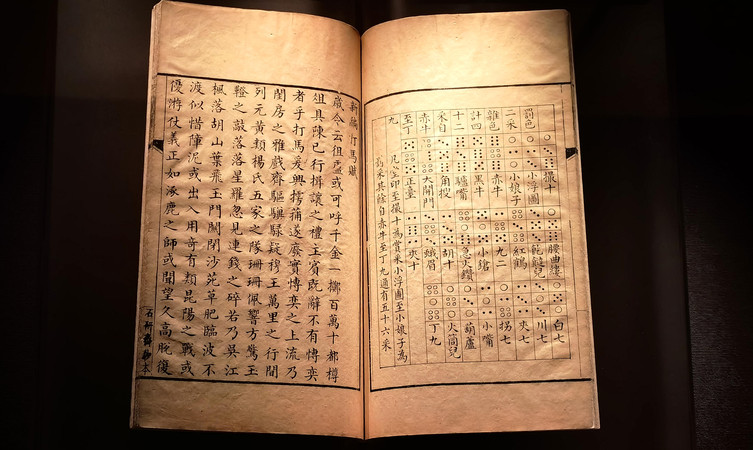 罰色 撮十 腰曲縷 白七
二采 小浮圖 兒 川七
小娘子 紅鶴 夾七
雜色 赤牛 九二 拐七
計四 黑牛 小鎗 小嘴
十二 驢嘴 急火鑽 葫蘆
采自 角搜 胡十 火筒兒
赤牛 大開門 蛾眉 丁九
至丁 正臺 夾十
九
凡 印至撮十為賞采小浮圖至小娘子為
罰采其餘自赤牛至丁九通有五十六采
新編打馬賦
歲令云徂盧或可呼千金一擲百萬十都樽
俎具陳已行揖讓之禮主賓既醉不有博奕
者乎打馬爰興摴蒱遂廢實博奕之上流乃
閨房之雅戲齊驅驥騄疑穆王萬里之行間
列元黃類楊氏五家之隊珊珊佩響方驚玉
鐙之敲落落星羅忽見連錢之碎若乃吳江
楓落胡山葉飛玉門關閉沙苑草肥臨波不
渡似惜障泥或出入用奇有類昆陽之戰或
優游仗義正如涿鹿之師或聞望久高脫復
石研齋鈔本